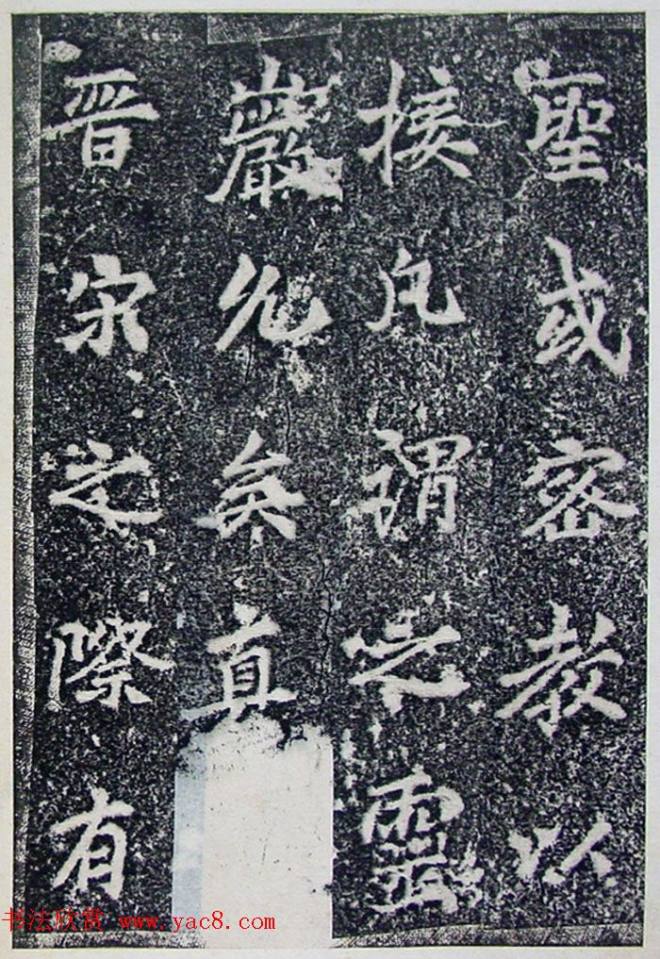 聖或密教以
接凡謂之靈
巖允矣真
晋宋之際有
书法欣赏 www.yac8.com